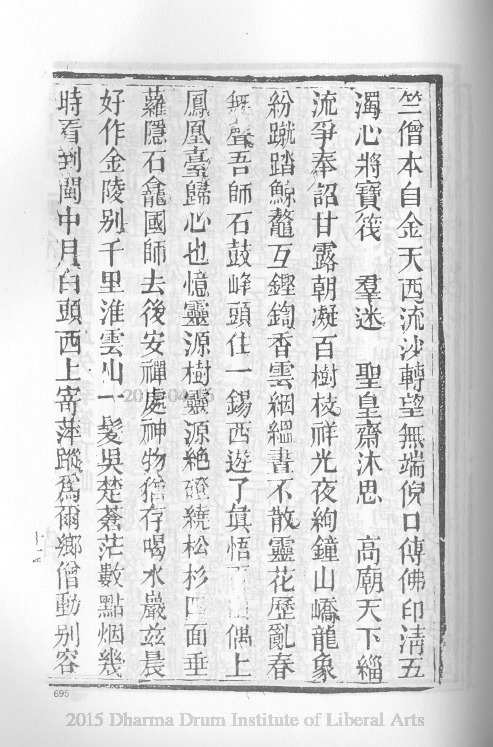 竺僧本自金天西流沙轉望無端倪口傳佛印淸五
濁心將寶筏　羣迷　聖皇齋沐思　高廟天下緇
流爭奉詔甘露朝凝百樹枝祥光夜絢鐘山嶠龍象
紛蹴踏鯨鼇互鏗鍧香雲絪縕書不散靈花歷亂春
無聲吾師石鼓峰頭住一錫西遊了眞悟偶上
鳳凰臺歸心也憶靈源樹靈源絶磴繞松杉四面垂
蘿隱石龕國師去後安禪處神物猶存喝水巖兹晨
好作金陵别千里淮雲山一髮吳楚蒼茫數點烟幾
時看到閩中月白頭西上寄萍蹤爲爾鄉僧動别容
十二
695
2015 Dharma Drum Institute of Liberal Arts